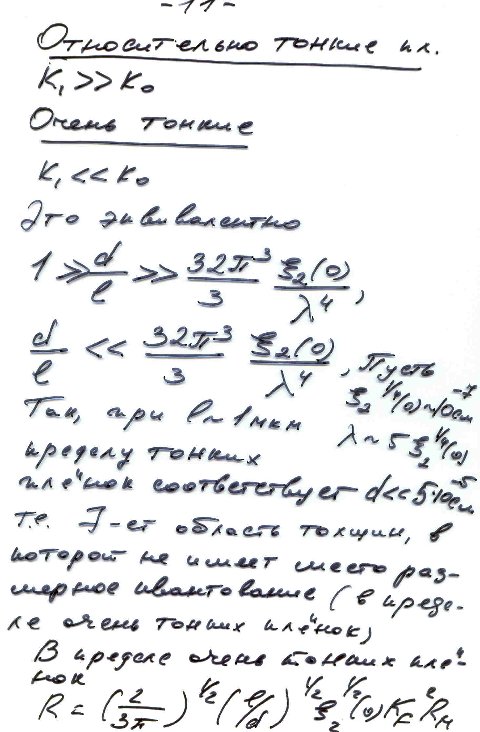 -11-
Относительно тонкие пл.
K₁>>K₀
Очень тонкие
K₁<<K₀
Это эквивалентно
1 >> d/l >> 32π³/3 ξ₂(0)/λ⁴,
d/l << 32π³/3 ξ₂(0)/λ⁴, Пусть
ξ₂^1/4(0)~10⁻⁷см
Так, при l~1мкм λ~5ξ₂^1/4(0)
пределу тонких
плёнок соответствует d<<5·10⁻⁵см
т.е. ∃-ет область толщин, в
которой не имеет место раз-
мерное квантование (в преде-
ле очень тонких плёнок)
В пределе очень тонких плё-
нок
R = (2/3π)^1/2 (l/d)^1/2 ξ₂^1/2(0) K_F² R_н